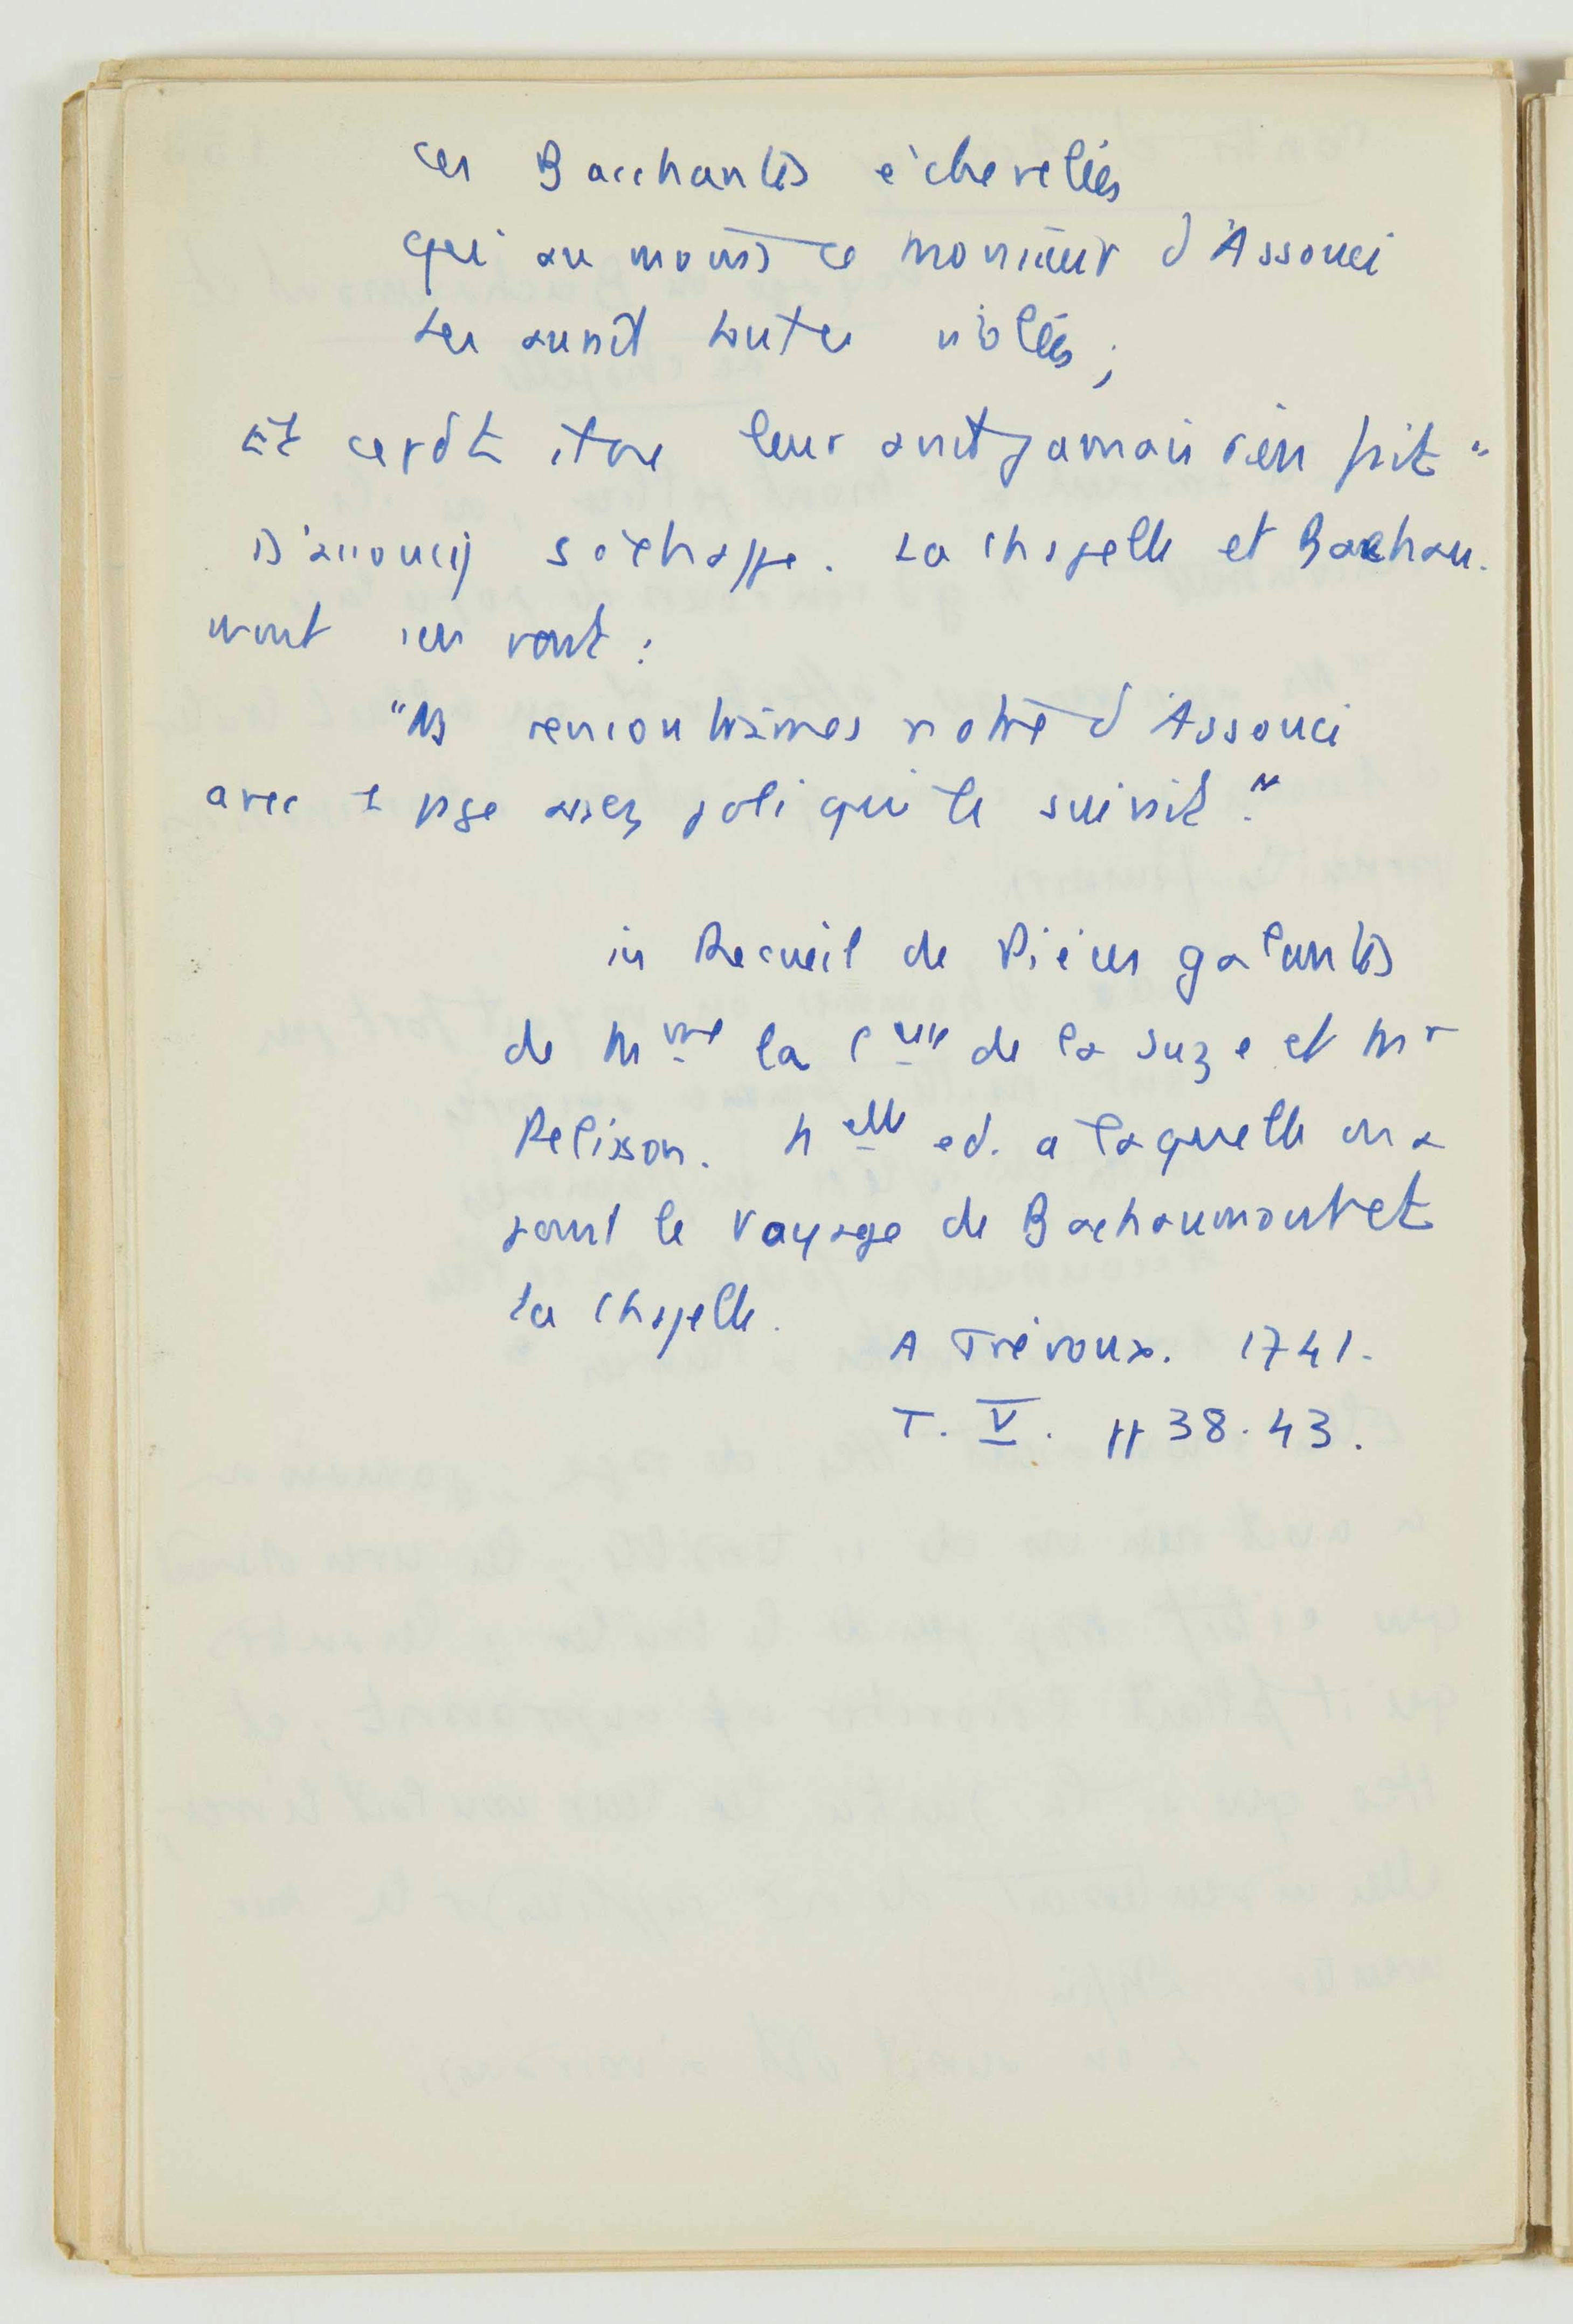 ces Bacchantes échevelées
qui au moins ce monsieur d'Assouci
Les aurait toutes violées ;
Et cependt il ne leur avait jamais rien fait "
D'assoucy s'échappe. La Chapelle et Bachau-
mont s'en vont :
"Ns rencontrâmes notre d'Assouci
avec 1 page assez joli qui le suivait."
in Recueil de Pièces galantes
de Mme la Ctesse de la Suze et Mr
Pelisson. Nelle ed. a laquelle on a
joint le Voyage de Bachaumont et
La Chapelle.
A Trévoux. 1741.
T. V. pp 38-43.